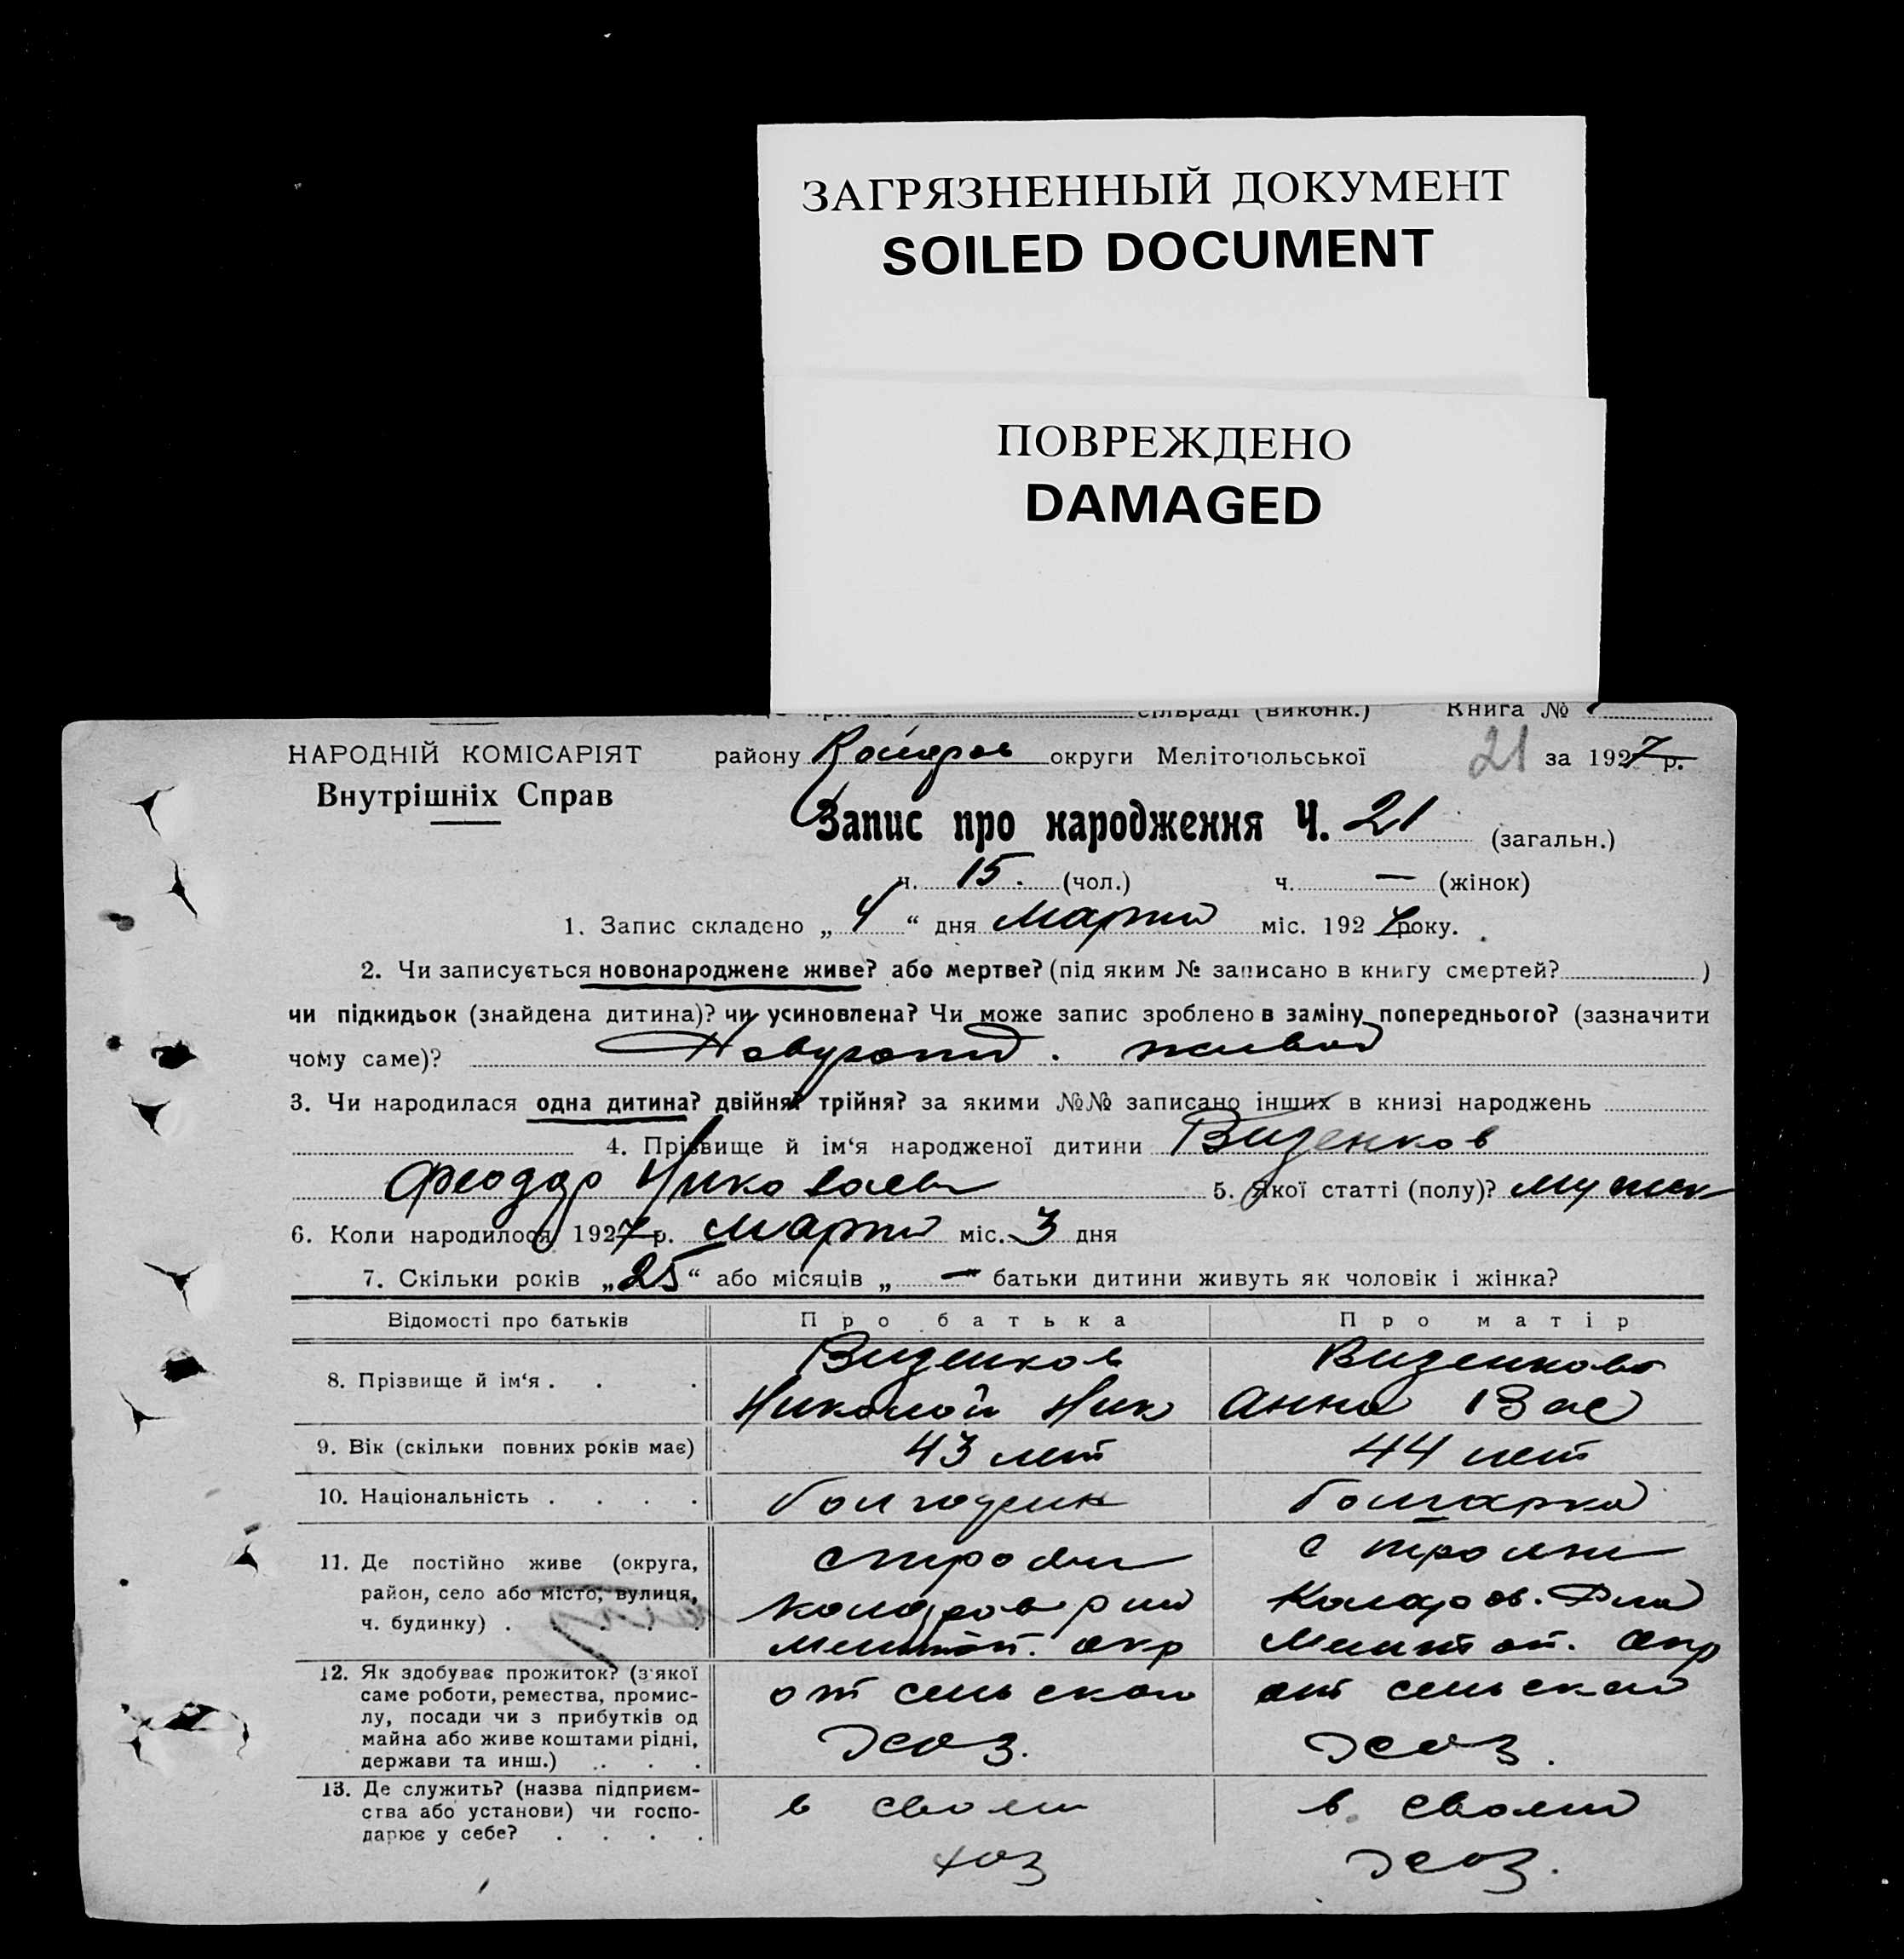 ЗАГРЯЗНЕННЫЙ ДОКУМЕНТ
SOILED DOCUMENT
ПОВРЕЖДЕНО
DAMAGED
сільраді (виконк.) Книга №
НАРОДНІЙ КОМІСАРІЯТ
Внутрішніх Справ
району округи Мелітопольської 21 за 1927 р.
Запис про народження Ч. 21 (загальн.)
ч. 15. (чол.) ч. — (жінок)
1. Запис складено „ 4 “ дня Марта міс. 1927 року.
2. Чи записується новонароджене живе? або мертве? (під яким № записано в книгу смертей? )
чи підкидьок (знайдена дитина)? чи усиновлена? Чи може запис зроблено в заміну попереднього? (зазначити
чому саме)? живой
3. Чи народилася одна дитина? двійня? трійня? за якими №№ записано інших в книзі народжень
4. Прізвище й ім‘я народженої дитини Визенков
Феодор Николаев 5. Якої статті (полу)? мужск
6. Коли народилося 1927 р. Марта міс. 3 дня
7. Скільки років „ 25 “ або місяців „ — “ батьки дитини живуть як чоловік і жінка?
Відомості про батьків Про батька Про матір
8. Прізвище й ім‘я . . . Визенков Николай Ник Визенкова Анна Вас
9. Вік (скільки повних років має) 43 лет 44 лет
10. Національність . . . . болгарин болгарка
11. Де постійно живе (округа,
район, село або місто, вулиця,
ч. будинку) .
Коларов р на Коларов. Р на
Мелитоп. окр Мелитоп. окр
12. Як здобуває прожиток? (з якої
саме роботи, ремества, промис-
лу, посади чи з прибутків од
майна або живе коштами рідні,
держави та инш.) . . .
от сельского от сельской
хоз. хоз.
13. Де служить? (назва підприєм-
ства або установи) чи госпо-
дарює у себе? . . . .
в своем в своем
хоз хоз.